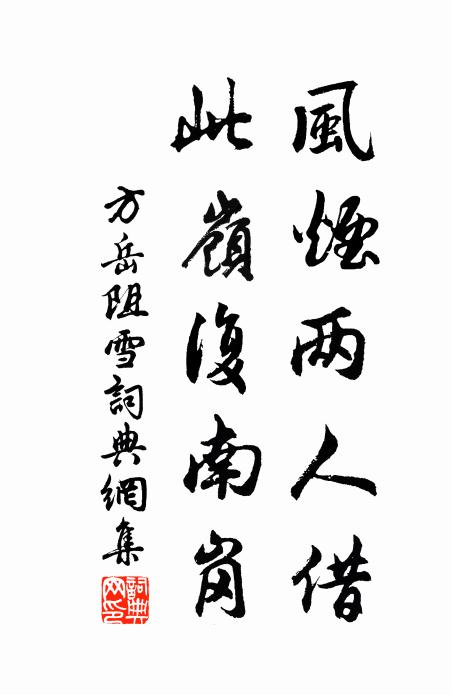 風煙两人借
此嶺復南崗
方岳阻雪詞典網集
詞典網印